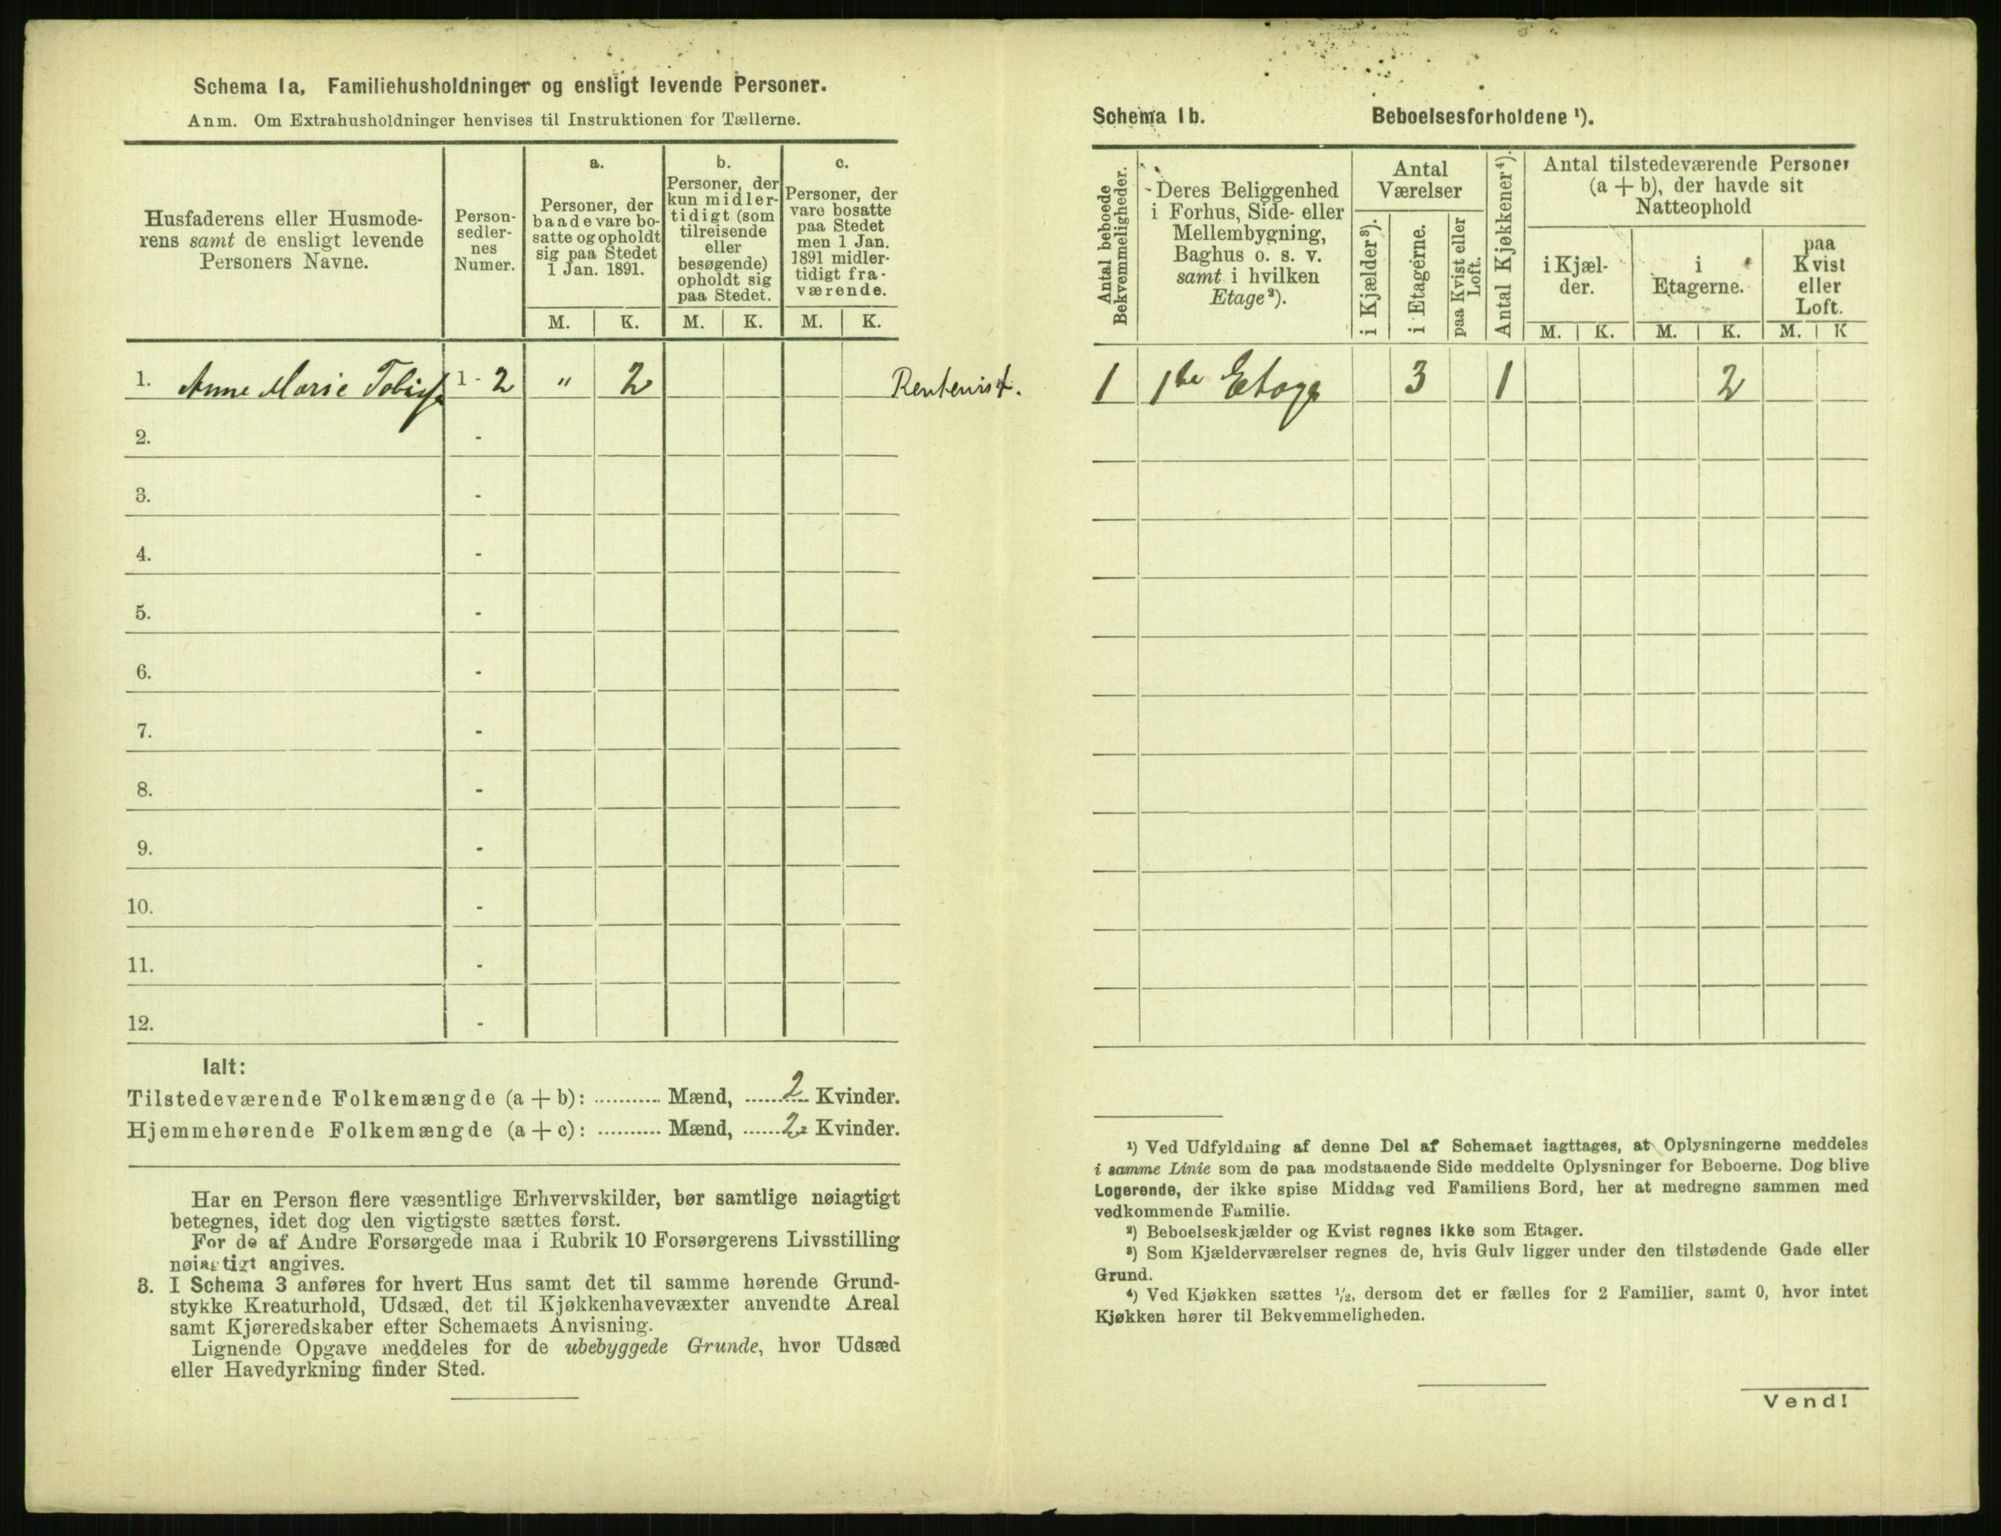 Schema 1a. Familiehusholdninger og ensligt levende Personer.
Anm. Om Extrahusholdninger henvises til Instruktionen for Tællerne.
Husfaderens eller Husmode-
rens samt de ensligt levende
Personers Navne.
Person-
sedler-
nes
Numer.
a.
Personer, der
baade vare bo-
satte og opholdt
sig paa Stedet
1 Jan. 1891.
b.
Personer, der
kun midler-
tidigt (som
tilreisende
eller
besøgende)
opholdt sig
paa Stedet.
c.
Personer, der
vare bosatte
paa Stedet
men 1 Jan.
1891 midler-
tidigt fra-
værende.
M. K. M. K. M. K.
1. Anne Marie 1 - 2 " 2 Rentenist.
2. -
3. -
4. -
5. -
6. -
7. -
8. -
9. -
10. -
11. -
12. -
Ialt:
Tilstedeværende Folkemængde (a + b): ........... Mænd, 2 Kvinder.
Hjemmehørende Folkemængde (a + c): ........... Mænd, 2 Kvinder.
Har en Person flere væsentlige Erhvervskilder, bør samtlige nøiagtigt
betegnes, idet dog den vigtigste sættes først.
For de af Andre Forsørgede maa i Rubrik 10 Forsørgerens Livsstilling
nøiagtigt angives.
3. I Schema 3 anføres for hvert Hus samt det til samme hørende Grund-
stykke Kreaturhold, Udsæd, det til Kjøkkenhavevæxter anvendte Areal
samt Kjøreredskaber efter Schemaets Anvisning.
Lignende Opgave meddeles for de ubebyggede Grunde, hvor Udsæd
eller Havedyrkning finder Sted.
Schema 1b. Beboelsesforholdene ¹).
Antal beboede
Bekvemmeligheder.
Deres Beliggenhed
i Forhus, Side- eller
Mellembygning,
Baghus o. s. v.
samt i hvilken
Etage²).
Antal
Værelser
i Kjælder³).
i Etagerne.
paa Kvist eller
Loft.
Antal Kjøkkener⁴).
Antal tilstedeværende Personer
(a + b), der havde sit
Natteophold
i Kjæl-
der.
i
Etagerne.
paa
Kvist
eller
Loft.
M. K. M. K. M. K
1 1ste Etage 3 1 2
¹) Ved Udfyldning af denne Del af Schemaet iagttages, at Oplysningerne meddeles
i samme Linie som de paa modstaaende Side meddelte Oplysninger for Beboerne. Dog blive
Logerende, der ikke spise Middag ved Familiens Bord, her at medregne sammen med
vedkommende Familie.
²) Beboelseskjælder og Kvist regnes ikke som Etager.
³) Som Kjælderværelser regnes de, hvis Gulv ligger under den tilstødende Gade eller
Grund.
⁴) Ved Kjøkken sættes ½, dersom det er fælles for 2 Familier, samt 0, hvor intet
Kjøkken hører til Bekvemmeligheden.
Vend!